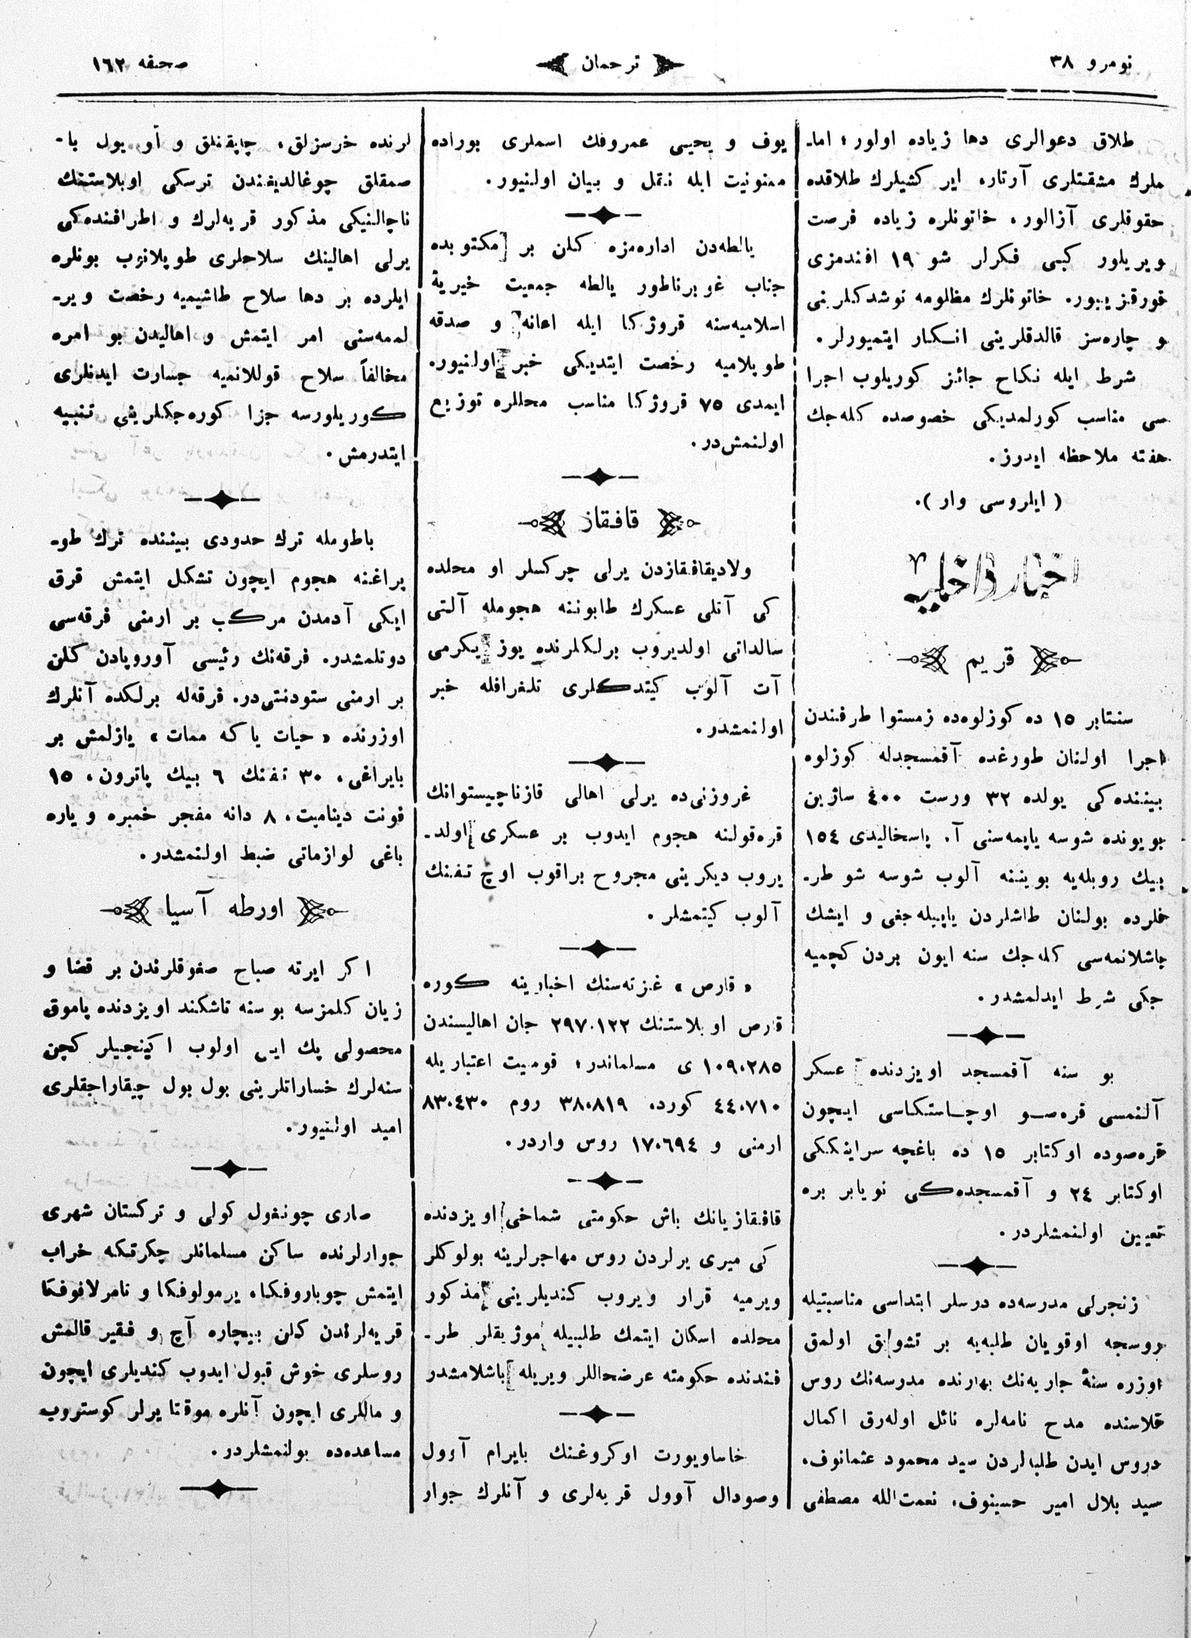 نومرو ٣٨
ترجمان
صحيفه ١٦٢
طلاق دعوالری دها زیاده اولور؛ اما۔
ملرك مشقتلری آرتار، ایر كشیلرك طلاقده
حقوقلری آزالور، خاتونلره زیاده فرصت
ویریلور كبی فكرلر شو ١٩ افندمزی
قورقزیبور. خاتونلرك مظلومه نوشدكلرینی
و چاره‌سز قالدقلرینی انكار ایتمیورلر.
شرط ایله نكاح جائز كوریلوب اجرا
سی مناسب كورلمدیكی خصوصده كله‌جك
هفته ملاحظه ایدوز.
( ایلروسی وار ).
اخبار داخلیه
قریم
سنتابر ١٥ ده كوزلوه‌ده زمستوا طرفندن
اجرا اولنان طورغده آقمسجدله كوزلوه
بیننده‌كی یولده ٣٢ ورست ٤٠٠ ساژین
بویونده شوسه یاپمه‌سنی آ. پاسخالیدی ١٥٤
بیك روبله‌یه بویننه آلوب شوسه شو طر۔
فلرده بولنان طاشلردن یاپیله‌جغی و ایشك
باشلانمه‌سی كله‌جك سنه ایون بردن كچمیه
جكی شرط ایدلمشدر.
بو سنه آقمسجد اویزدنده عسكر
آلنمسی قره‌صو اوچاستكاسی ایچون
قره‌صوده اوكتابر ١٥ ده باغچه سراینككی
اوكتابر ٢٤ و آقمسجده‌كی نویابر بره
تعیین اولنمشلردر.
زنجرلی مدرسه‌ده درسلر ابتداسی مناسبتیله
روسجه اوقویان طلبه‌یه بر تشویق اولمق
اوزره سنۀ جاریه‌نك بهارنده مدرسه‌نك روس
قلاسنده مدح نامه‌لره نائل اوله‌رق اكمال
دروس ایدن طلبه‌لردن سید محمود عثمانوف،
سید بلال امیر حسینوف، نعمت‌الله مصطفی
یوف و یحیی عمروفك اسملری بوراده
ممنونیت ایله نقل و بیان اولنیور.
یالطه‌دن اداره‌مزه كلن بر مكتوبده
جناب غوبرناطور یالطه جمعیت خیریۀ
اسلامیه‌سنه قروژكا ایله اعانه و صدقه
طوپلامیه رخصت ایتدیكی خبر اولنیور.
ایمدی ٧٥ قروژكا مناسب محللره توزیع
اولنمش‌در.
قافقاز
ولادیقافقازدن یرلی چركسلر او محلده
كی آتلی عسكرك طابوننه هجومله آلتی
سالداتی اولدیروب برلكلرنده یوز یكرمی
آت آلوب كیتدكلری تلغرافله خبر
اولنمشدر.
غروزنی‌ده یرلی اهالی قازناچیستوانك
قره‌قولنه هجوم ایدوب بر عسكری اولد۔
یروب دیكرینی مجروح براقوب اوچ تفنك
آلوب كیتمشلر.
« قارص » غزته‌سنك اخبارینه كوره
قارص اوبلاستنك ٢٩٧٠١٢٢ جان اهالیسندن
١٠٩٠٢٨٥ ی مسلماندر؛ قومیت اعتباریله
٤٤٠٧١٠ كورد، ٣٨٠٨١٩ روم ٨٣٠٤٣٠
ارمنی و ١٧٠٦٩٤ روس واردر.
قافقازیانك باش حكومتی شماخی اویزدنده
كی میری یرلردن روس مهاجرلرینه بولوكلر
ویرمیه قرار ویروب كندیلرینی مذكور
محلده اسكان ایتمك طلبیله موژیقلر طر۔
فندنده حكومته عرضحاللر ویریله باشلامشدر
خاساویورت اوكروغنك بایرام آوول
وصودال آوول قریه‌لری و آنلرك جوار
لرنده خرسزلق، چاپقنلق و آو یول با۔
صمقلق چوغالدیغندن ترسكی اوبلاستنك
ناچالنیكی مذكور قریه‌لرك و اطرافنده‌كی
یرلی اهالینك سلاحلری طوپلانوب بونلره
ایلرده بر دها سلاح طاشیمیه رخصت ویر۔
لمه‌سنی امر ایتمش و اهالیدن بو امره
مخالفاً سلاح قوللانمیه جسارت ایدنلری
كوریلورسه جزا كوره‌جكلرینی تنبیه
ایتدرمش.
باطومله ترك حدودی بیننده ترك طو۔
پراغنه هجوم ایچون تشكل ایتمش قرق
ایكی آدمدن مركب بر ارمنی فرقه‌سی
دوتلمشدر. فرقه‌نك رئیسی آوروپادن كلن
بر ارمنی ستودنتی‌در. فرقه‌له برلكده آنلرك
اوزرنده « حیات یاكه ممات » یازلمش بر
بایراغی، ٣٠ تفنك ٦ بیك پاترون، ١٥
فونت دینامیت، ٨ دانه مفجر خمبره و یاره
باغی لوازماتی ضبط اولنمشدر.
اورطه آسیا
اكر ایرته صباح صغوقلرندن بر قضا و
زیان كلمزسه بو سنه تاشكند اویزدنده پاموق
محصولی پك ایی اولوب اكینجیلر كچن
سنه‌لرك خساراتلرینی بول بول چیقاراجقلری
امید اولنیور.
صاری چونغول كولی و تركستان شهری
جوارلرنده ساكن مسلمانلر چكرتكه خراب
ایتمش چوباروفكا، یرمولوفكا و نامرلافوفكا
قریه‌لرندن كلن بیچاره آچ و فقیر قالمش
روسلری خوش قبول ایدوب كندیلری ایچون
و ماللری ایچون آنلره موقتا یرلر كوستروب
مساعده‌ده بولنمشلردر.